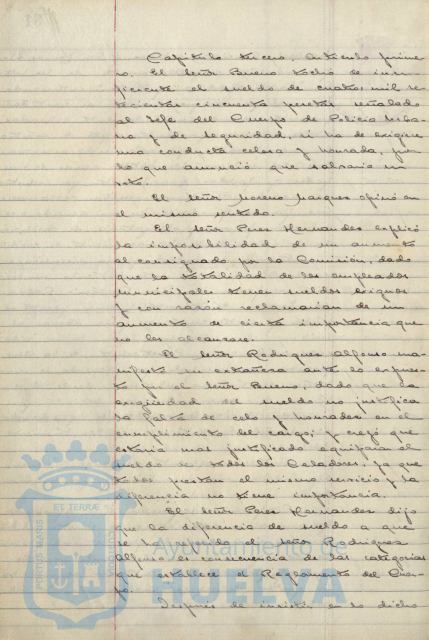 Capítulo tercero, artículo prime-
ro. El señor Bueno tachó de insu-
ficiente el sueldo de cuatro mil se-
tecientas cincuenta pesetas señalado
al Jefe del Cuerpo de Policía Urba-
na y de Seguridad, si ha de exigirse
una conducta celosa y honrada, por
lo que anunció que salvaría su
voto.
El señor Moreno Marques opinó en
el mismo sentido.
El señor Peres Hernandes explicó
la imposibilidad de un aumento
al consignado por la Comisión, dado
que la totalidad de los empleados
municipales tienen sueldos exiguos
y con razón reclamarían de un
aumento de cierta importancia que
no les alcanzase.
El señor Rodrigues Alfonso ma-
nifestó su extrañeza ante lo expues-
to por el señor Bueno, dado que la
exigüedad del sueldo no justifica
la falta de celo y honrades en el
cumplimiento del cargo; y creyó que
estaría mas justificado equiparar el
sueldo de todos los Celadores, ya que
todos prestan el mismo servicio y la
diferencia no tiene importancia.
El señor Peres Hernandes dijo
que la diferencia de sueldo a que
se ha referido el señor Rodrigues
Alfonso es consecuencia de las categorías
que establece el Reglamento del Cuer-
po.
Después de insistir en lo dicho
Ayuntamiento de
HUELVA
ET TERRAE
PORTUS MARIS
CUSTODIA